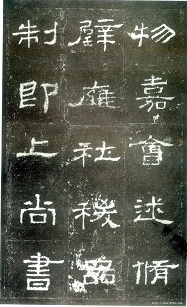 物嘉會述脩
璧廱社稷品
制即上尚書